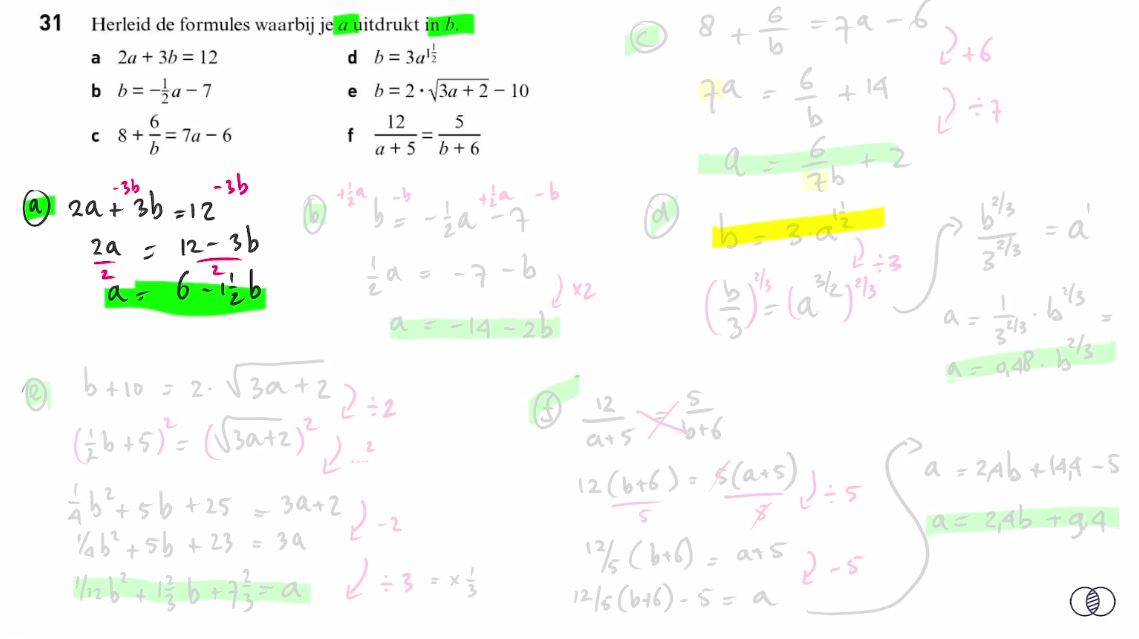 31 Herleid de formules waarbij je a uitdrukt in b.
a 2a + 3b = 12
b b = -½a - 7
c 8 + 6/b = 7a - 6
d b = 3a^1½
e b = 2 · √(3a + 2) - 10
f 12/(a + 5) = 5/(b + 6)
a -3b -3b
2a + 3b = 12
2a/2 = (12 - 3b)/2
a = 6 - 1½b
b +½a -b +½a -b
b = -½a - 7
½a = -7 - b
×2
a = -14 - 2b
c 8 + 6/b = 7a - 6
+6
7a = 6/b + 14
÷7
a = 6/7b + 2
d b = 3·a^1½
÷3
(b/3)^2/3 = (a^3/2)^2/3
b^2/3 / 3^2/3 = a^1
a = 1/3^2/3 · b^2/3 =
a = 0,48 · b^2/3
e b + 10 = 2·√(3a + 2)
÷2
(½b + 5)² = (√(3a+2))²
...²
¼b² + 5b + 25 = 3a + 2
-2
¼b² + 5b + 23 = 3a
÷3 = × ⅓
1/12 b² + 1⅔ b + 7⅔ = a
f 12/(a+5) = 5/(b+6)
12(b+6)/5 = 5(a+5)/5
÷5
12/5 (b+6) = a+5
-5
12/5 (b+6) - 5 = a
a = 2,4b + 14,4 - 5
a = 2,4b + 9,4